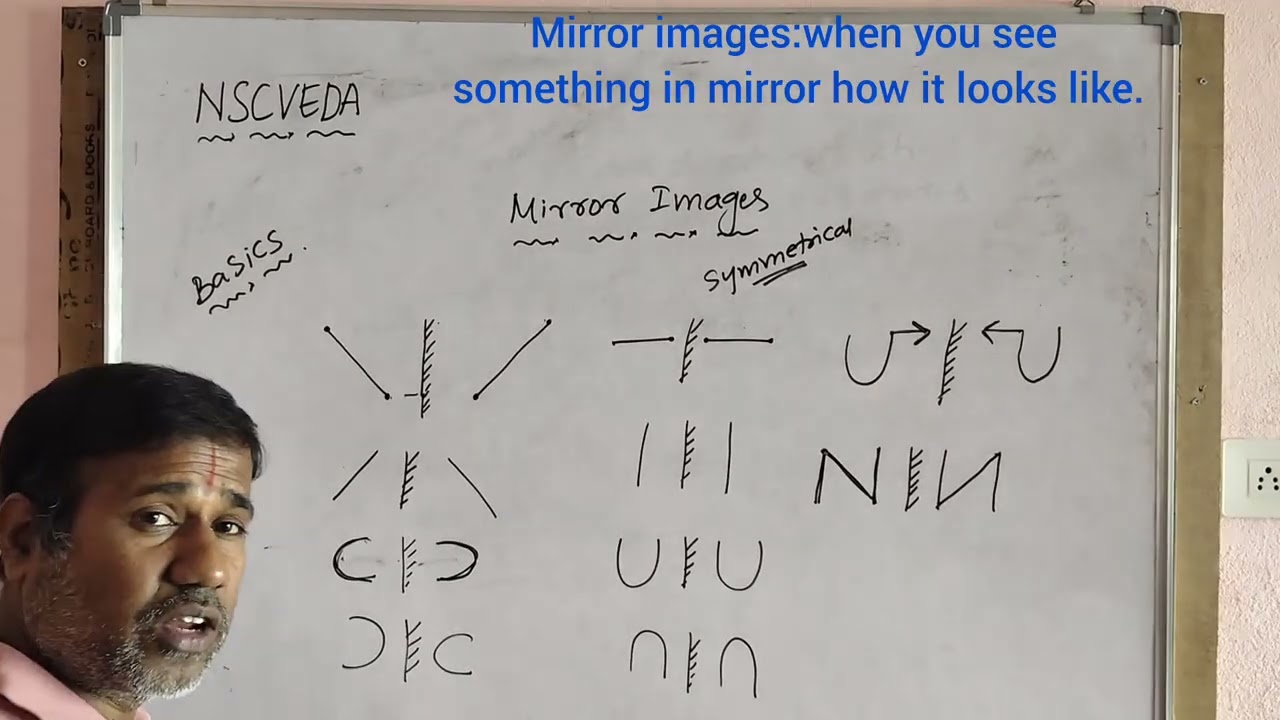 Mirror images:when you see
something in mirror how it looks like.
NSCVEDA
Mirror Images
Basics.
Symmetrical
N И